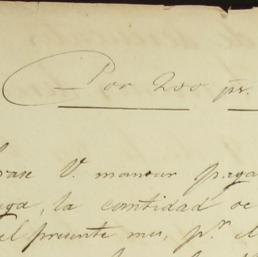 Por 200 ps.
rase V. mandar paga
ega, la cantidad de
el presente mes, pr. el